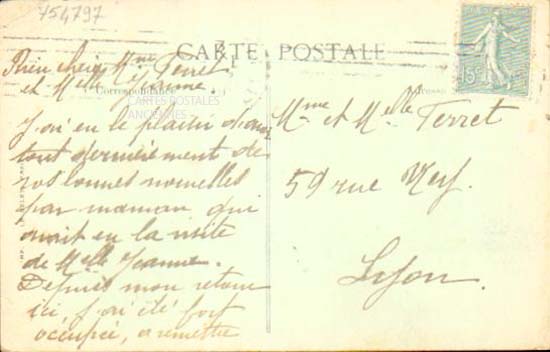 754797
CARTE POSTALE
Correspondance
CARTES POSTALES
ANCIENNES
Bien chère Mme Terret
et Melle Jeanne.
J'ai eu le plaisir d'avoir
tout dernièrement de
vos bonnes nouvelles
par maman qui
avait eu la visite
de Melle Jeanne.
Depuis mon retour
ici, j'ai été fort
occupée, a remettre
Mme et Melle Terret
59 rue
Lyon.
15c